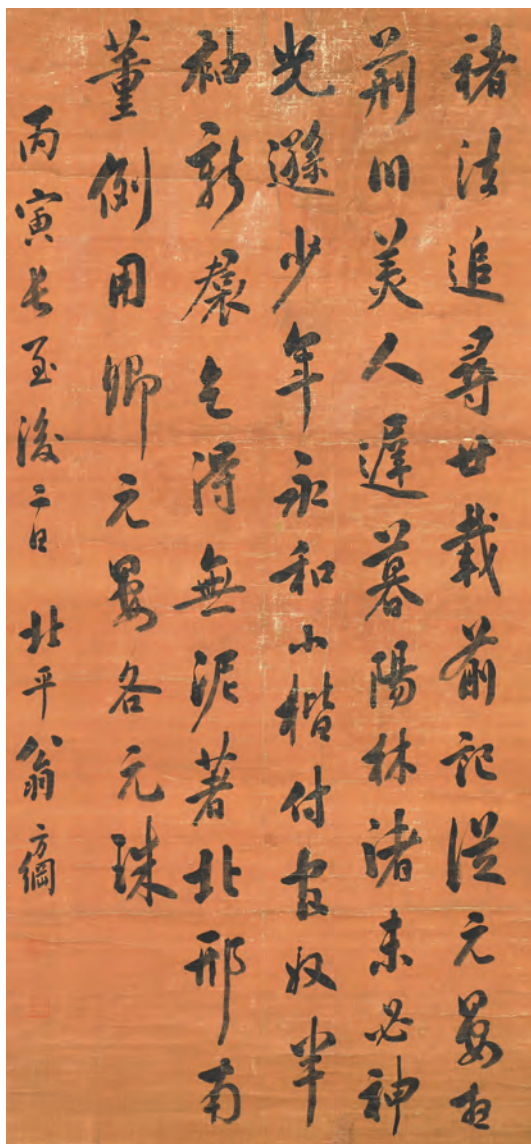 褚法追尋廿載前記從元晏出
荊川美人遲暮陽林渚未必神
光遜少年永和小楷付官奴半
袖新裠乞得無泥著北邢南
董例用卿元晏各元珠
丙寅長至後二日 北平翁方綱